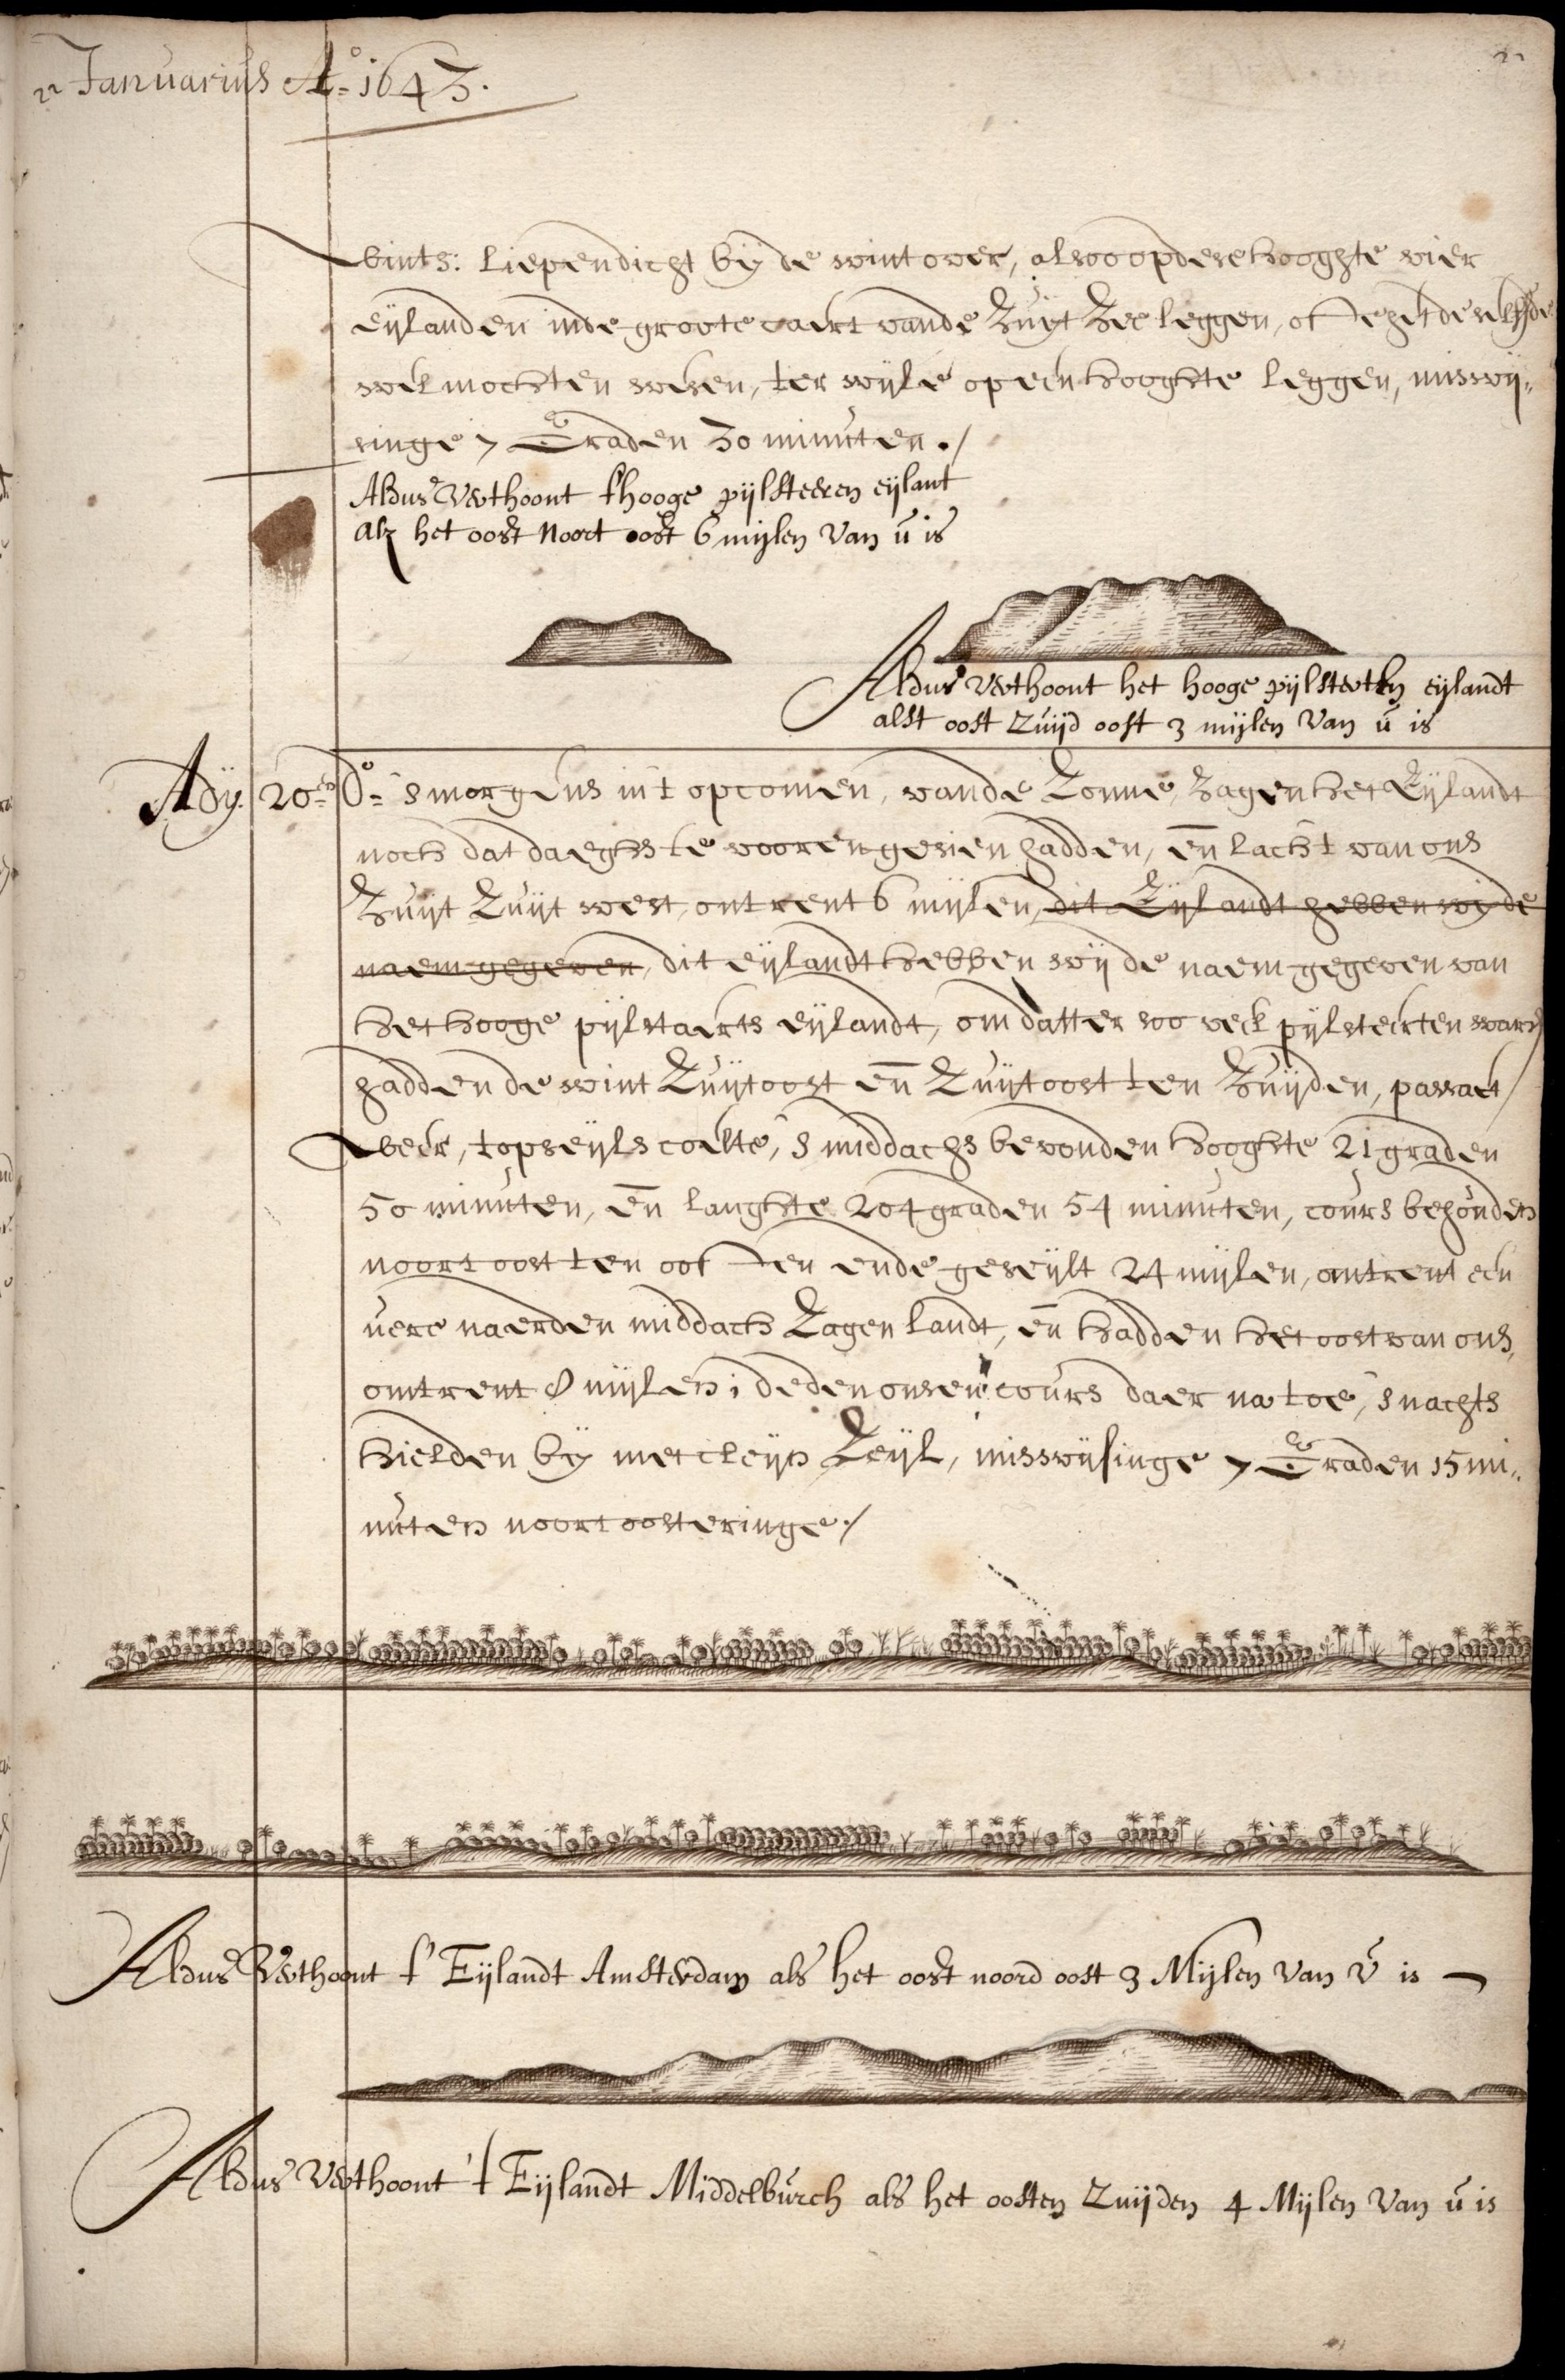 Januarius A:o 1643.
vints: liepen dicht bij de wint over, alsoo op dese hooghte vier
eijlanden in de groote caert van de Zuijt Zee leggen, of
wel mochten wesen, ter wijle op een hooghte leggen, miswij„
singe 7 Graden 30 minuten ./
Aldus Verthoont t'hooge pijlsteeren eijlant
als het oost Noort oost 6 mijlen Van u is
Aldus Verthoont het hooge pijlsterten eijlandt
alst oost Zuijd oost 3 mijlen Van u is
Adÿ. 20:en Do: 's morgens in 't opcomen, van de Zonne, Zagen het Eijlandt
noch dat daeghs te vooren gesien hadden, en̄ lach 't van ons
Zuijt Zuijt west, ontrent 6 mijlen, dit Eijlandt hebben wij de
naem gegeven, dit eijlandt hebben wij de naem gegeven van
het hooge pijlstaerts eijlandt, om datter soo veel pijlsteerten waren
hadden de wint Zuijtoost en̄ Zuijtoost ten Zuijden, passaet
weer, topseijls coelte, 's middachs bevonden hooghte 21 graden
50 minuten, en̄ langhte 204 graden 54 minuten, cours behouden
noortoost ten oosten ende geseijlt 24 mijlen, ontrent een
uere naer den middach Zagen landt, en̄ hadden het oost van ons,
omtrent 8 mijlen; deden onsen cours daer na toe, 's nachts
hielden bij met cleijn Zeijl, misswijsinge 7 Graden 15 mi„
nuten noortoosteringe ./
Aldus Verthoont t' Eijlandt Amsterdam als het oost noord oost 3 Mijlen Van u is
Aldus Verthoont 't Eijlandt Middelburch als het oosten Zuijden 4 Mijlen Van u is